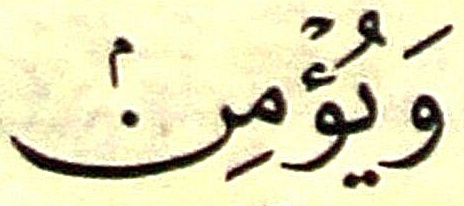 وَيُؤْمِنۢ